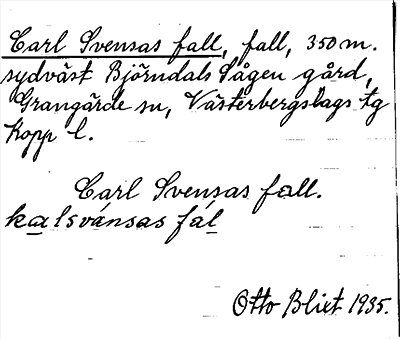 Carl Svensas fall, fall, 350 m.
sydväst Björndals Sågen gård,
Grangärde sn, Västerbergslags tg
Kopp l.
Carl Svensas fall.
kalsvánsas fál
Otto Blixt 1935.